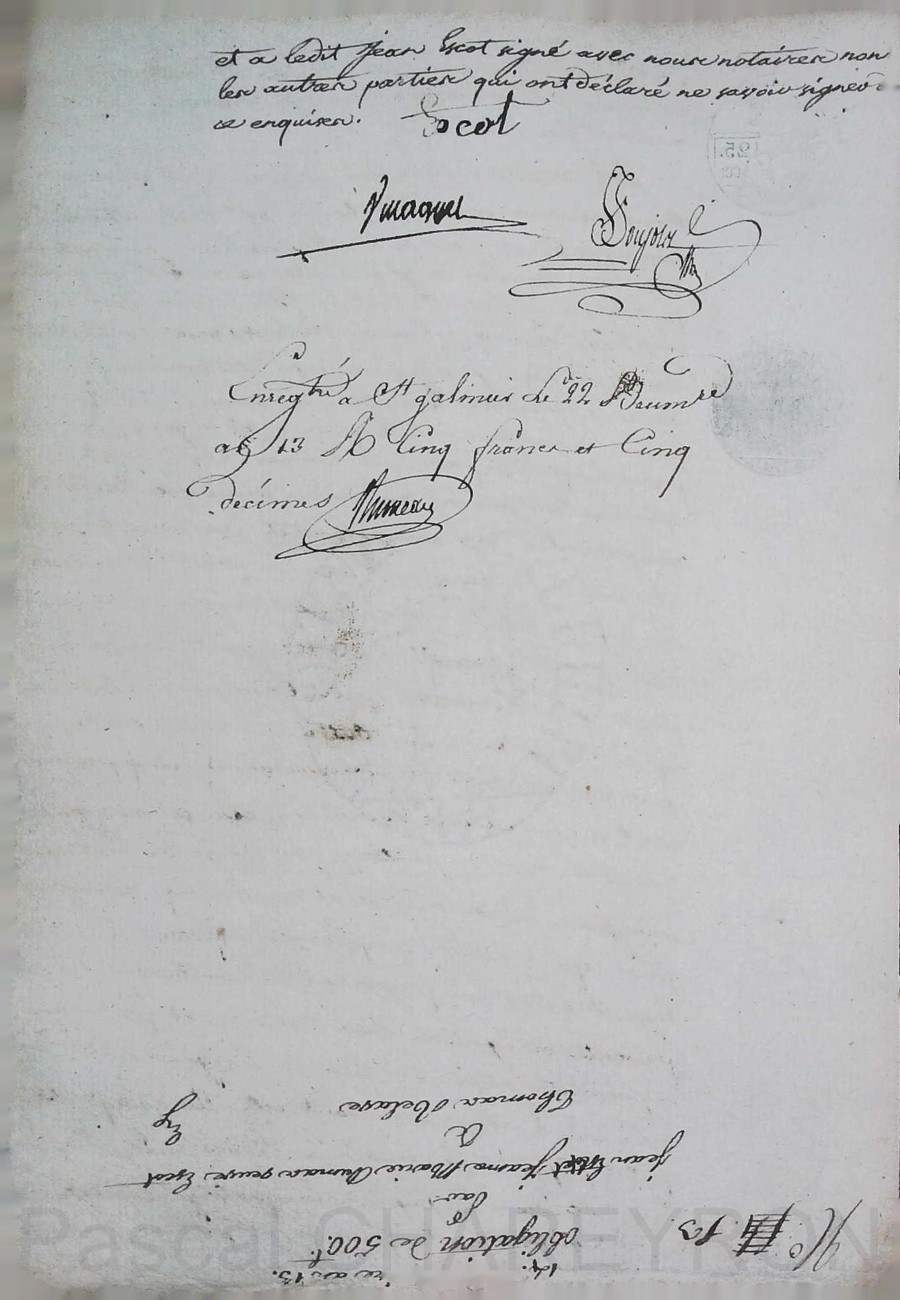 et a ledit Jean Escot signé avec nous notaires non
les autres parties qui ont déclaré ne savoir signer
de enquises. Escot
Enregtré à St galmier Le 22 Brumre
an 13 R Cinq francs et Cinq
decimes
25.
N° 13
an 13.
obligation de 500f.
Par
jean Escot et jeanne Marie veuve Escot
A
Thomas Delase
Pascal CHAPEYRON